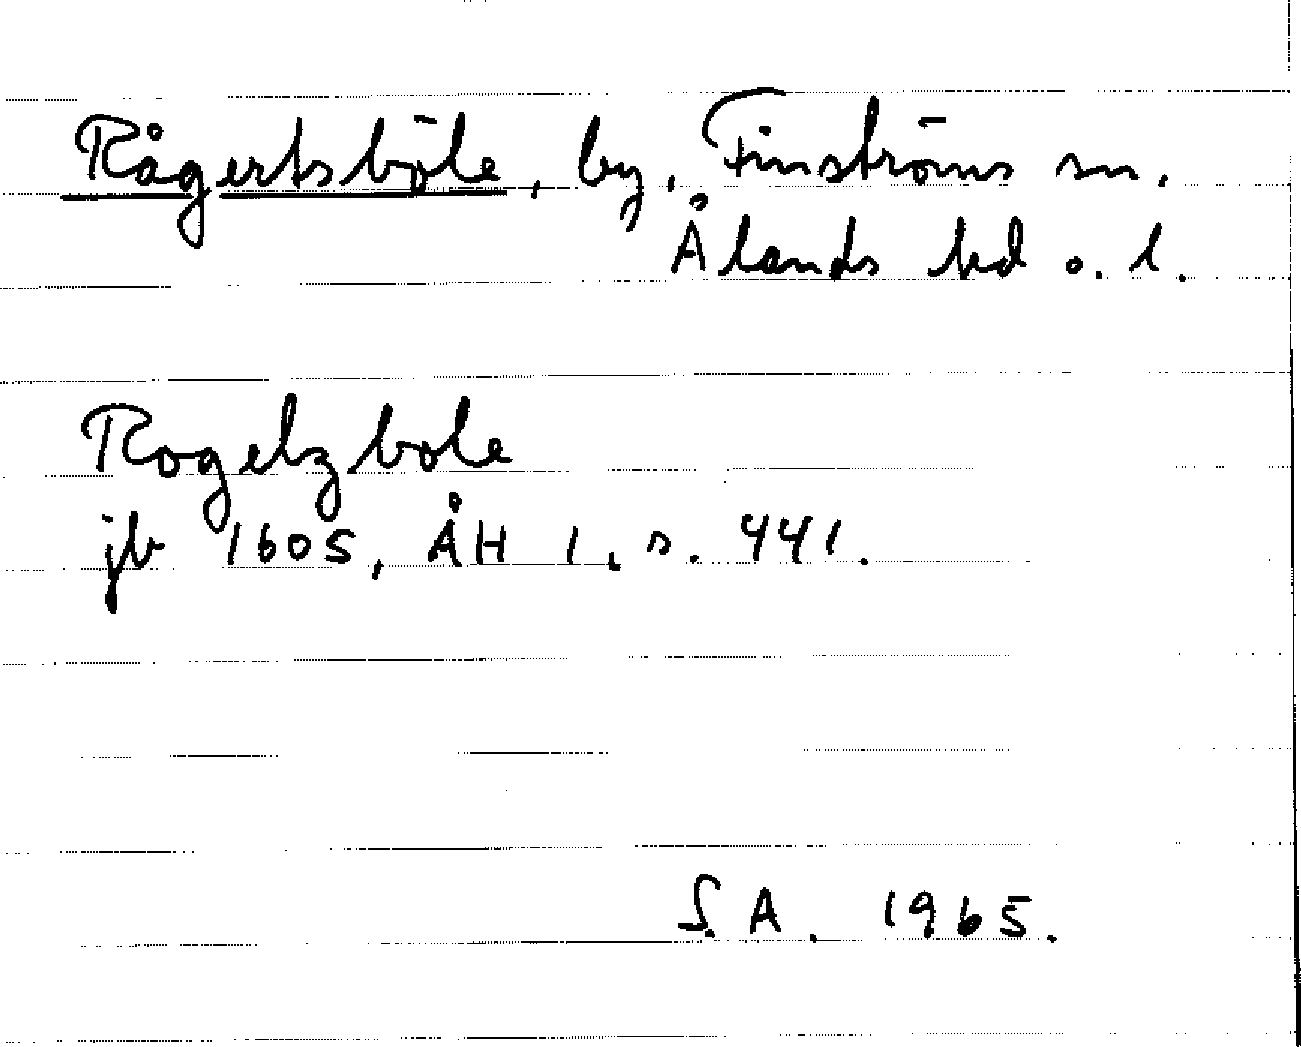 Rågertsböle, by, Finströms sn.
Ålands hd o. l.
Rogelzbole
jb 1605, ÅH 1, s. 441.
S.A. 1965.